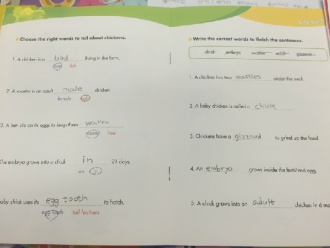 Choose the right words to tell about chickens.
1. A chicken is a bird living in the farm.
2. A rooster is an adult male chicken.
female male
3. A hen sits on its eggs to keep them warm
in 21 days.
egg tooth to hatch.
egg tooth tail feathers
Write the correct words to finish the sentences.
chick embryo wattles adult gizzard
1. A chicken has two wattles under the neck.
2. A baby chicken is called a chick
3. Chickens have a gizzard to grind up the food.
4. An embryo grows inside the fertilized egg.
5. A chick grows into an adult chicken in 6